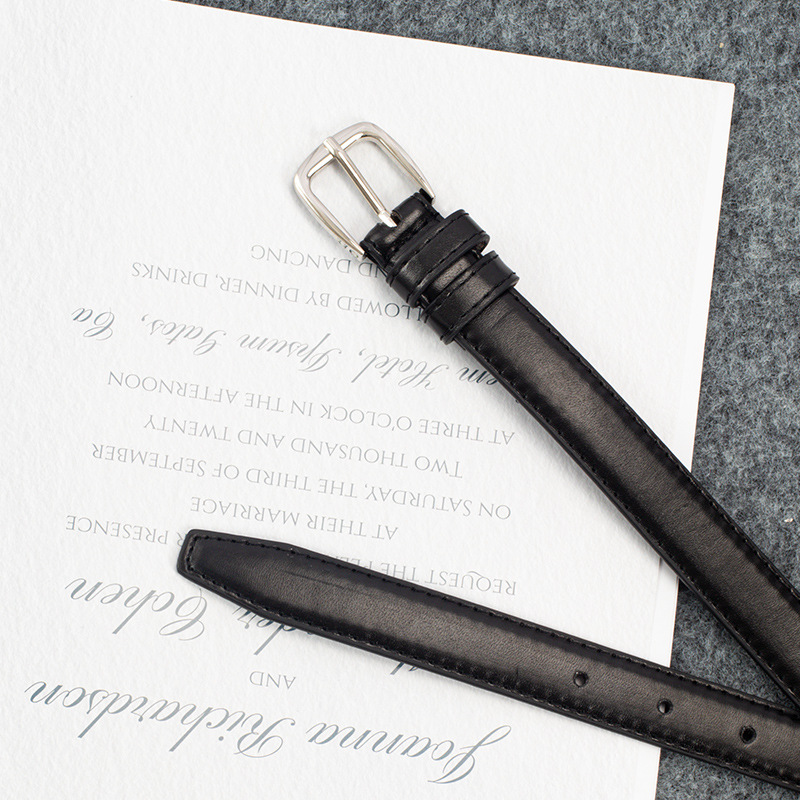 Joanna Richardson
AND
Cohen
REQUEST THE PRESENCE
AT THEIR MARRIAGE
ON SATURDAY, THE THIRD OF SEPTEMBER
TWO THOUSAND AND TWENTY
AT THREE O'CLOCK IN THE AFTERNOON
Hotel, Ipsum Ca
LLOWED BY DINNER, DRINKS
ND DANCING